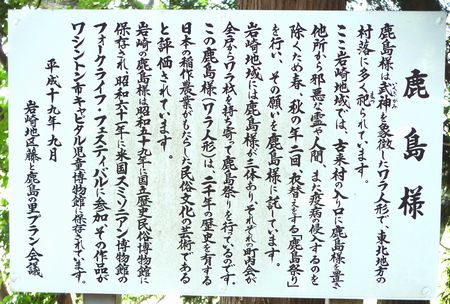 鹿島様
鹿島様は武神を象徴したワラ人形で、東北地方の
村落に多く祀られています。
ここ岩崎地域では、古来村の入り口に鹿島様を置き
他所から邪悪な霊や人間、また疫病が侵入するのを
除くため春、秋の年二回、衣替えをする「鹿島祭り」
を行い、その願いを鹿島様に託しています。
岩崎地域には鹿島様が三体あり、それぞれの町内会が
全戸からワラ束を持ち寄って鹿島祭りを行っているのです。
この鹿島様（ワラ人形）は、二千年の歴史を有する
日本の稲作農業がもたらした民俗文化の芸術である
と評価されています。
岩崎の鹿島様は昭和五十五年に国立歴史民俗博物館に
保存され、昭和六十一年に米国スミソニアン博物館の
フォーク・ライフ・フェスティバルに参加、その作品が
ワシントン市キャピタル児童博物館に保存されています。
平成十九年九月
岩崎地区藤と鹿島の里プラン会議